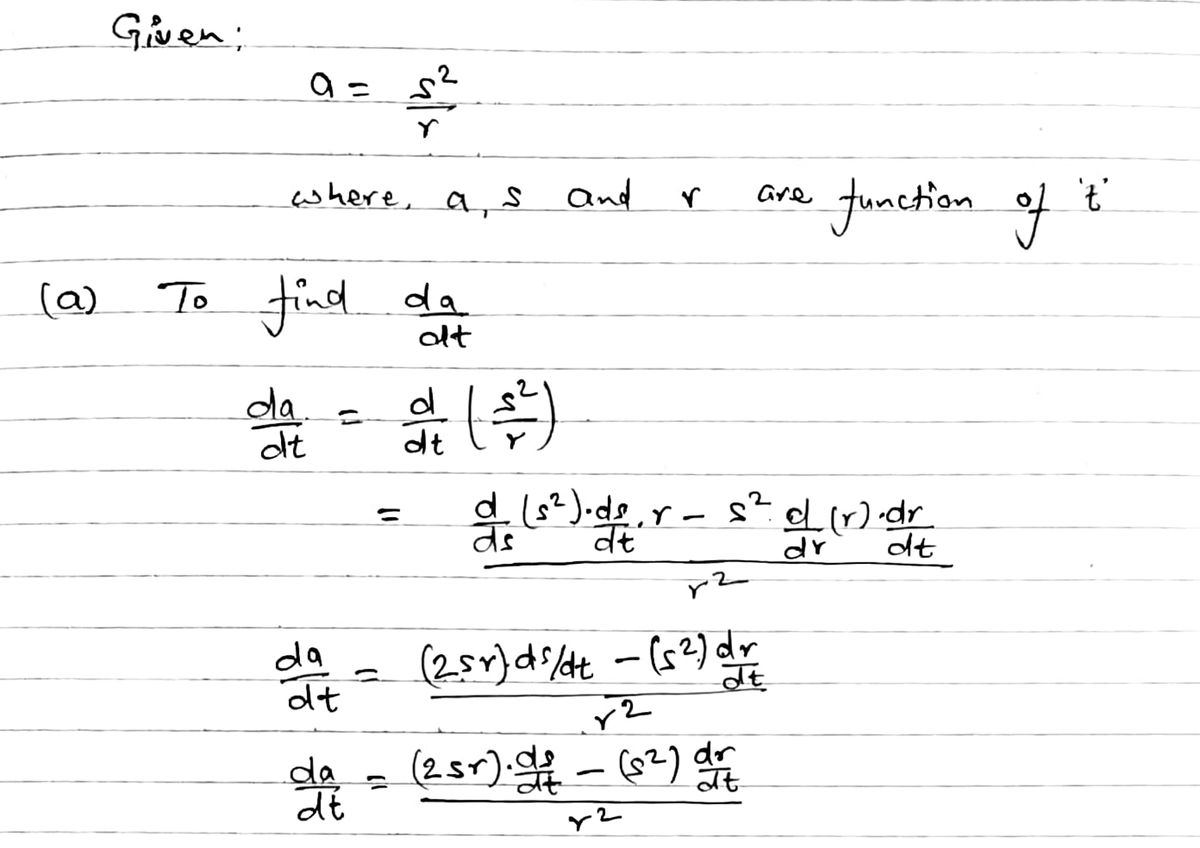 Given:
a = s²/r
where, a, s and r are function of 't'
(a) To find da/dt
da/dt = d/dt (s²/r)
= (d/ds (s²)·ds/dt · r - s² · d/dr (r)·dr/dt) / r²
da/dt = ((2sr) ds/dt - (s²) dr/dt) / r²
da/dt = ((2sr)·ds/dt - (s²) dr/dt) / r²